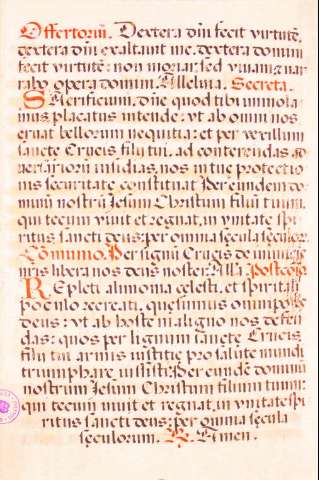 Offertoriũ. Dextera dñi fecit virtutẽ,
dextera dñi exaltauit me. dextera domini
fecit virtutẽ: non moriar, sed viuam, z nar
rabo opera domini. Alleluia. Secreta.
SAcrificium, dñe quod tibi immola
mus placatus intende: vt ab omni nos
eruat bellorum nequitia: et per vexillum
sancte Crucis filij tui, ad conterendas ad
uersariorum insidias, nos in tue protectio
nis securitate constituat. Per eundem do
minũ nostrũ Jesum Christum filiũ tuum.
qui tecum viuit et regnat, in vnitate spi
ritus sancti deus: per omnia secula seculorũ.
Comunio. Per signũ Crucis de inimicis
nris libera nos deus noster. Alla. Postcoĩo.
REpleti alimonia celesti, et spiritali
poculo recreati, quesumus omnipotẽs
deus: vt ab hoste maligno nos defen
das: quos per lignum sancte Crucis
filij tui armis iustitie pro salute mundi
triumphare iussisti: Per eundẽ dominũ
nostrum Jesum Christum filium tuum:
qui tecum viuit et regnat, in vnitate spi
ritus sancti deus: per omnia secula
seculorum. R. Amen.